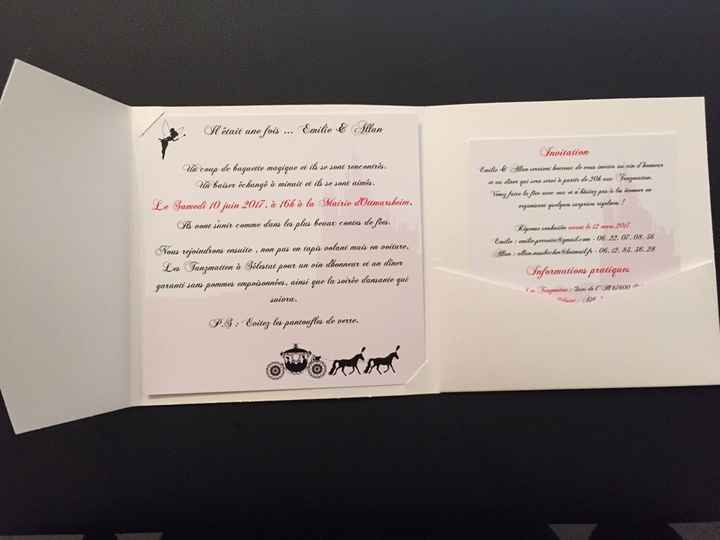 Il était une fois ... Emilie & Allan
Un coup de baguette magique et ils se sont rencontrés.
Un baiser échangé à minuit et ils se sont aimés.
Le Samedi 10 juin 2017, à 16h à la Mairie d'Ottmarsheim,
Ils vont s'unir comme dans les plus beaux contes de fées.
Nous rejoindrons ensuite, non pas en tapis volant mais en voiture,
Les Tanzmatten à Sélestat pour un vin d'honneur et un dîner
garanti sans pommes empoisonnées, ainsi que la soirée dansante qui
suivra.
P.S : Evitez les pantoufles de verre.
Invitation
Emilie & Allan seraient heureux de vous inviter au vin d'honneur
et au dîner qui sera servi à partir de 20h aux Tanzmatten.
Venez faire la fête avec eux et n'hésitez pas à les étonner en
organisant quelques surprises rigolotes !
Réponse souhaitée avant le 12 mars 2017
Emilie : - 06. 22. 07. 08. 56
Allan : - 06. 12. 85. 56. 28
Informations pratiques
Les Tanzmatten : Quai de l'Ill 67600